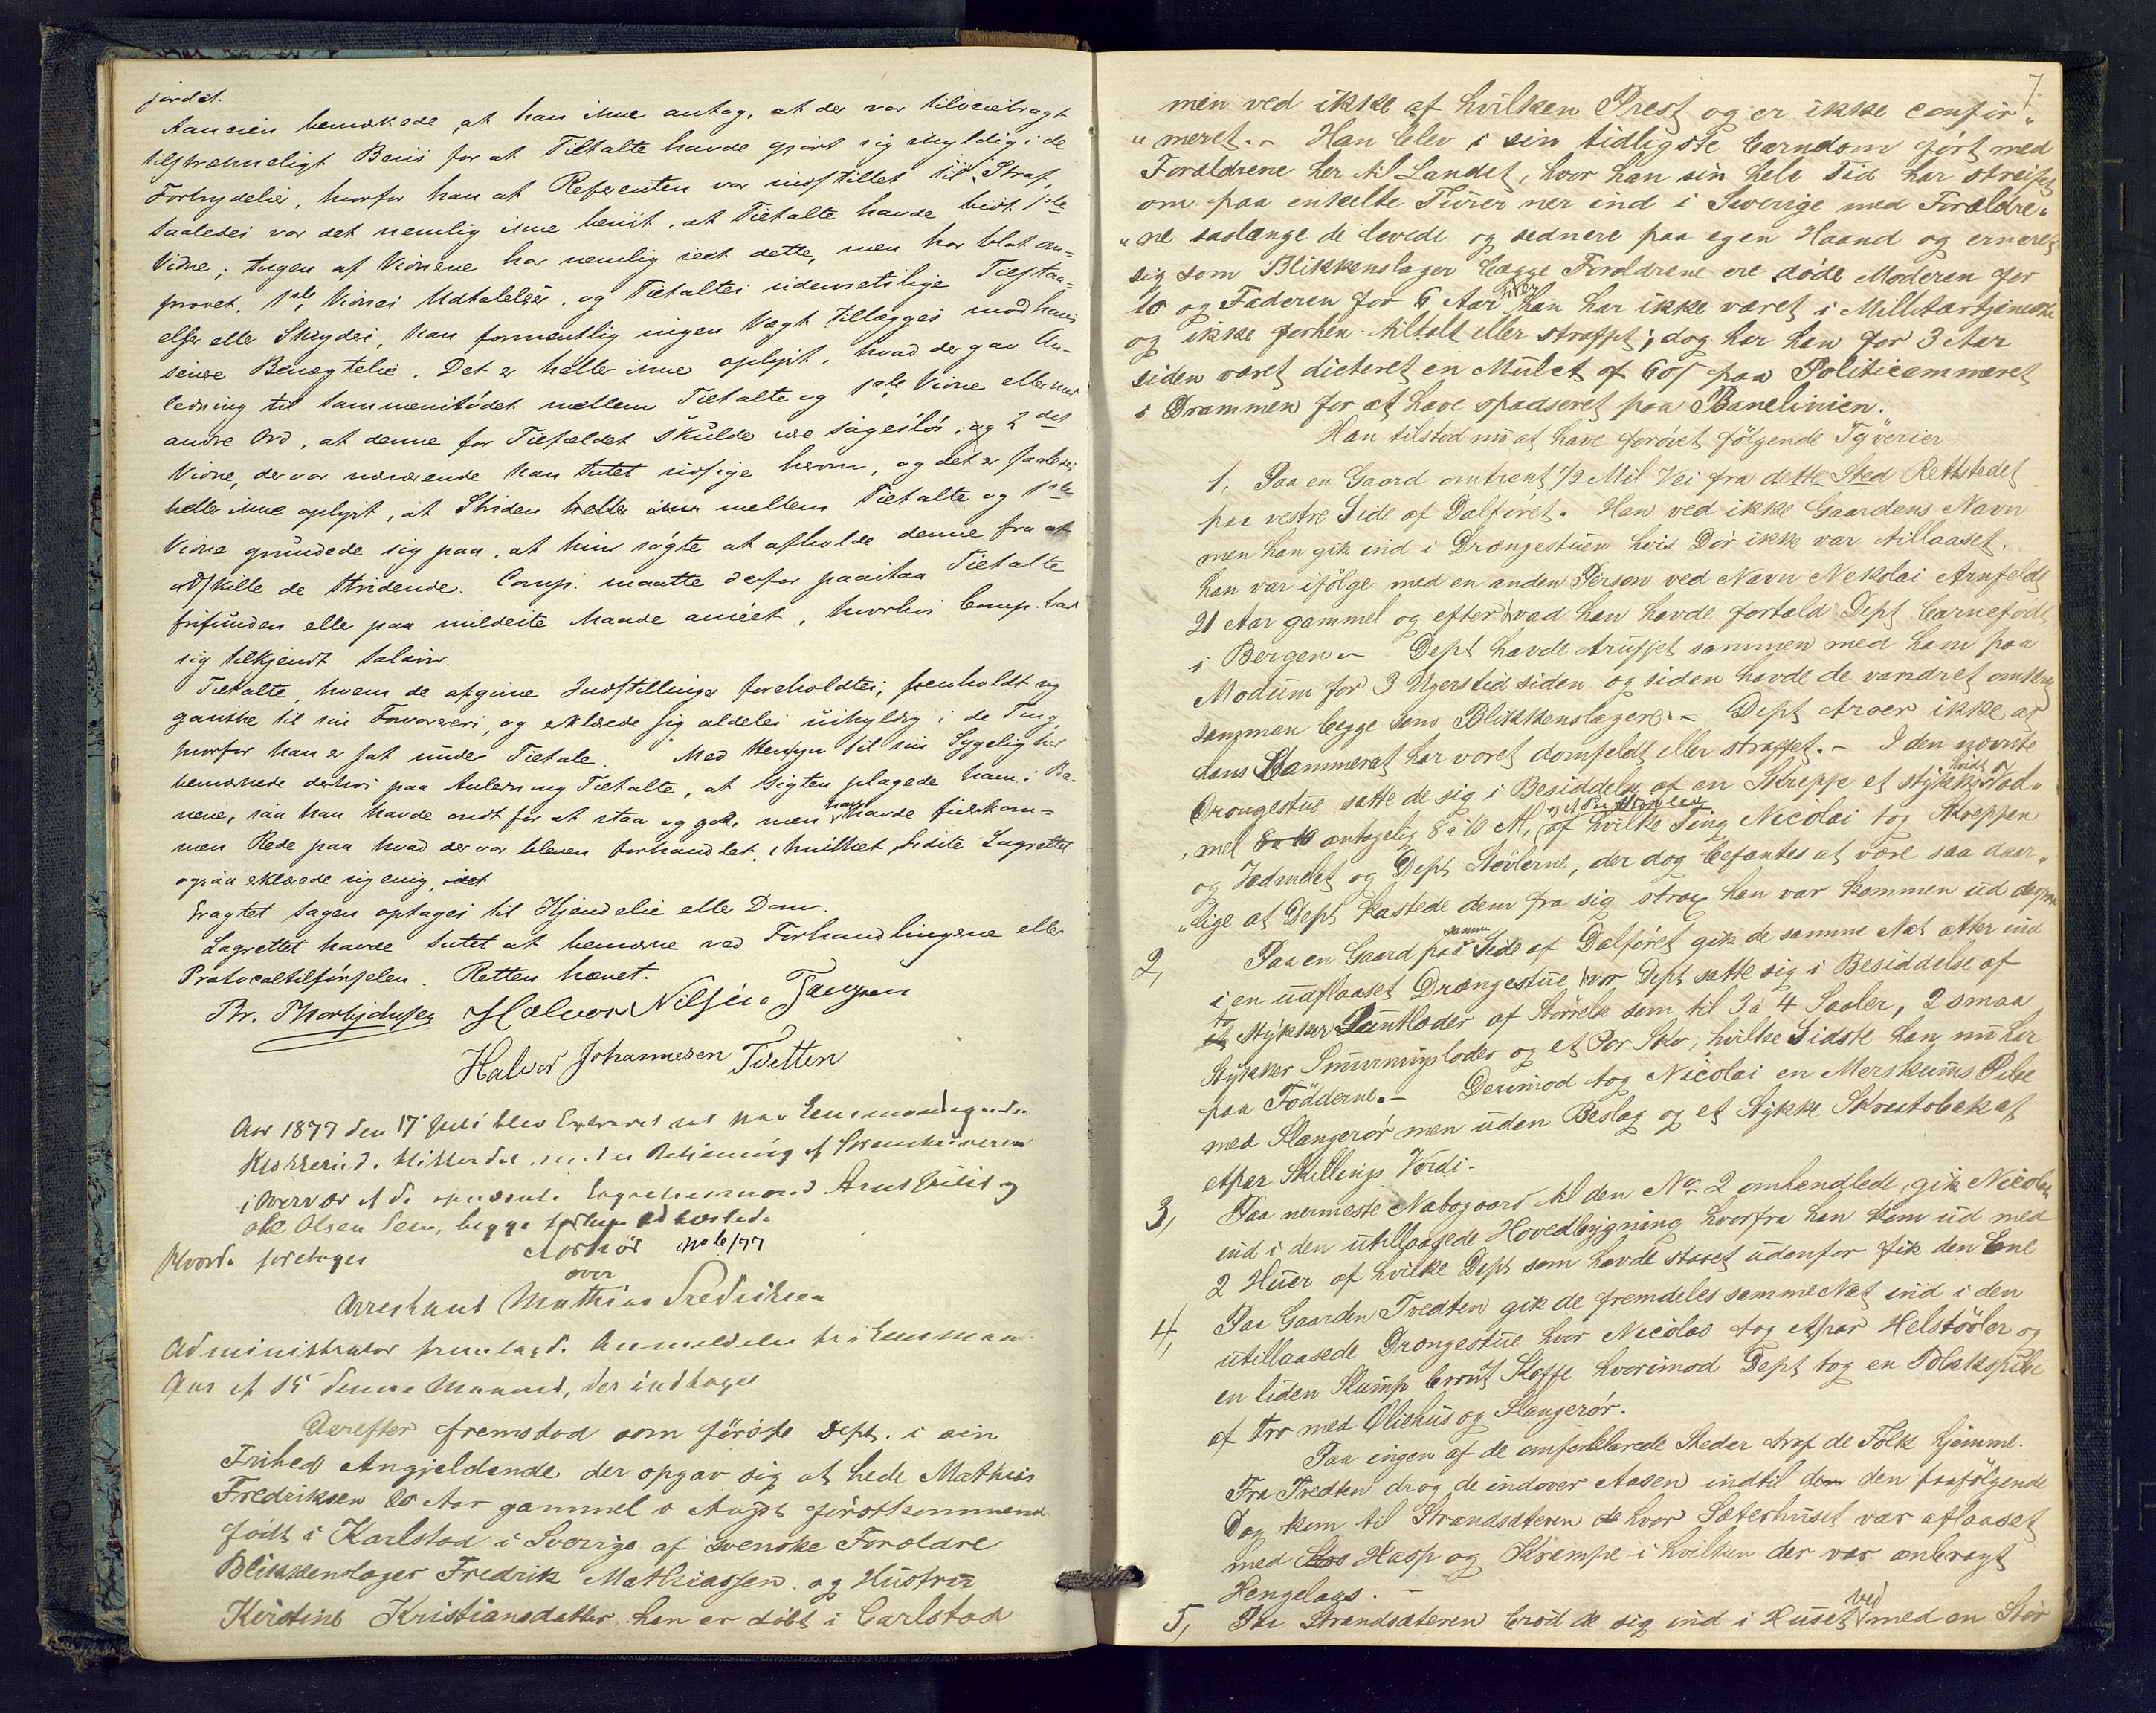 jordet.
Aancien bemærkede, at han ikke antog, at der var tilveiebragt
tilstrækkeligt Beviis for at Tiltalte havde gjort sig skyldig i de
Forbrydelser, hvorfor han af Referenten var indstillet til Straf,
saaledes var det nemlig ikke beviist, at Tiltalte havde bidt 1ste
Vidne; Ingen af Vidnerne har nemlig seet dette, men har blot an-
provet. 1ste Vidnes Udtalelser, og Tiltaltes udenretslige Tilstaa-
elser eller Skryderi, kan formentlig ingen Vægt tillægges mod hans
senere Benægtelse. Det er heller ikke oplyst, hvad der gav An-
ledning til Sammenstødet mellem Tiltalte og 1ste Vidne eller med
andre Ord, at denne for Tilfældet skulde være sagesløs; og 2det
Vidne, der var nærværende kan Intet udsige herom, og det er saaledes
heller ikke oplyst, at Striden mellem Tiltalte og 1ste
Vidne grundede sig paa, at hiin søgte at afholde denne fra at
adskille de stridende. Comp. maatte derfor paastaa Tiltalte
frifunden eller paa mildeste Maade anseet, hvorhos Comp. bad
sig tilkjendt Salair.
Tiltalte, hvem de afgivne Indstillinger foreholdtes, henholdt sig
ganske til sin Forsvarer, og erklærede sig aldeles uskyldig i de Ting,
hvorfor han er sat under Tiltale. Med Hensyn til sin Sygelighed
bemærkede derhos paa Anledning Tiltalte, at Gigten plagede ham i Be-
nene, saa han havde ondt for at staa og gaa, men han havde fuldkom-
men Rede paa hvad der var bleven forhandlet, i hvilket sidste Lagrettet
ogsaa erklærede sig enig,
Eragtet Sagen optages til Kjendelse eller Dom.
Lagrettet havde Intet at bemærke ved Forhandlingerne eller
Protocoltilførselen. Retten hævet.
Br. Thorbjørnsen Halvor Nilsen Tangen
Halvor Johannesen Tvetten
Aar 1877 den 17 Juli blev Extraret sat paa Lensmandsgaarden
Klokkerud. betjening af Sorenskriveren
i Overvær af de opnævnte Laugrettesmænd
Ole Olsen Teen, begge
Hvorda foretages Forhør No 6/77
over
Arrestant Mathias Fredriksen
Administrator fremlagde Anmeldelse fra Lensmand
Aas af 15 denne Maaned, der indtages
Derefter fremstod som første Dept. i sin
Frihed Angjeldende der opgav sig at hede Mathias
Fredriksen 20 Aar gammel i Augst førstkommend
født i Karlstad i Sverige af svenske Foreldre
Blikkenslager Fredrik Mathiassen og Hustru
Kirstine Kristiansdatter, han er døbt i Carlstad
7.
men ved ikke af hvilken Prest og er ikke confir„
„meret. - Han blev i sin tidligste Barndom ført med
Foreldrene her til Landet, hvor han sin hele Tid har streifet
om paa enkelte Turer nær ind i Sverige med Foreldre„
„ne saalenge de levede og sednere paa egen Haand og erneret
sig som Blikkenslager begge Foreldrene ere døde Moderen for
10 og Faderen for 6 Aar siden han har ikke været i Militærtjeneste
og ikke forhen tiltalt eller straffet; dog har han for 3 Aar
siden været dicteret en Mulct af 60 s paa Politicammeret
i Drammen for at have spadseret paa Banelinien.
Han tilstod nu at have forøvet følgende Tyverier
1, Paa en Gaard omtrent 1/2 Mil Vei fra dette Sted Rettstedet
paa vestre Side af Dalføret. Han ved ikke Gaardens Navn
men han gik ind i Drængestuen hvis Dør ikke var tillaaset.
han var ifølge med en anden Person ved Navn Nekolai Arnfeldt
21 Aar gammel og efter hvad han havde fortald Dept barnefødt
i Bergen. - Dept havde truffet sammen med ham paa
Modum for 3 Ugerstid siden og siden havde de vandret omkring
sammen begge som Blikkenslagere. - Dept troer ikke at
hans Kammerat har været domfeldt eller straffet. - I den nævnte
Drængestue satte de sig i Besiddelse af en Skreppe et stykke hvidt Vad„
„mel 8 a 10 antagelig 8 á 10 Al, og et Par Støvler af hvilke Ting Nicolai tog Skreppen
og Vadmelet og Dept Støvlerne, der dog befantes at være saa daar„
„lige at Dept kastede dem fra sig strax han var kommen ud derfra
2, Paa en Gaard paa samme Side af Dalføret gik de samme Nat atter ind
i en uaflaaset Drængestue hvor Dept satte sig i Besiddelse af
to Stykker Puntlæder af Størrelse som til 3 á 4 Saaler, 2 smaa
Stykker Smurningslæder og et Par Sko, hvilke Sidste han nu har
paa Fødderne. - Derimod tog Nicolai en Merskums Pibe
med Slangerør men uden Beslag og et Stykke Skraatobak af
etpar Skillings Verdi.
3, Paa nermeste Nabogaard til den No 2 omhendlede, gik Nicolai
ind i den utillaasede Hovedbygning hvorfra han kom ud med
2 Huer af hvilke Dept som havde staaet udenfor fik den Ene
4, Paa Gaarden Tvedten gik de fremdeles samme Nat ind i den
utillaasede Drængestue hvor Nicolai tog etpar Helstøvler og
en liden Slump brent Kaffe hvorimod Dept tog en Tobakspibe
af Træ med Oliehus og Slangerør.
Paa ingen af de omforklarede Steder traf de Folk hjemme.
Fra Tvedten drog de indover Aasen indtil den den paafølgende
Dag kom til Strandsæteren de hvor Sæterhuset var aflaaset
med Hasp og Krampe i hvilken der var anbragt
Hengelaas. -
5, Paa Strandsæteren brød de sig ind i Huset ved med en Stør